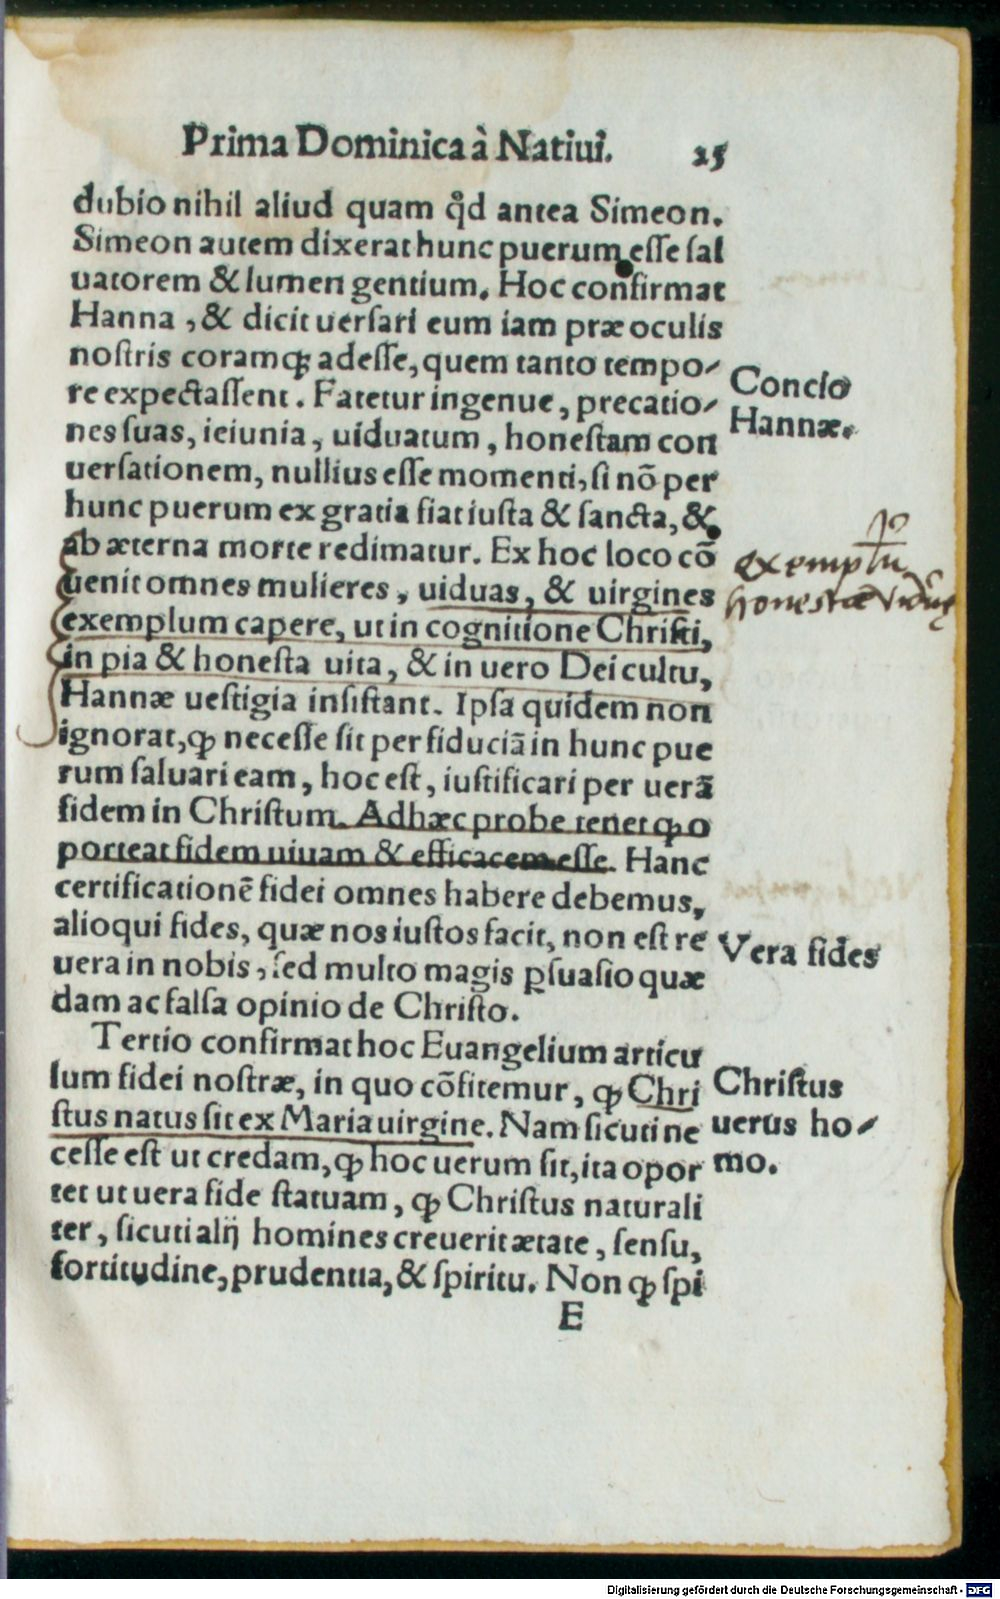 Prima Dominica à Natiui. 25
dubio nihil aliud quam qd̛ antea Simeon.
Simeon autem dixerat hunc puerum esse sal
uatorem & lumen gentium. Hoc confirmat
Hanna, & dicit uersari eum iam præ oculis
nostris coramqꝫ adesse, quem tanto tempo-
re expectassent. Fatetur ingenue, precatio-
nes suas, ieiunia, uiduatum, honestam con
uersationem, nullius esse momenti, si nō per
hunc puerum ex gratia fiat iusta & sancta, &
ab æterna morte redimatur. Ex hoc loco cō
uenit omnes mulieres, uiduas, & uirgines
exemplum capere, ut in cognitione Christi,
in pia & honesta uita, & in uero Dei cultu,
Hannæ uestigia insistant. Ipsa quidem non
ignorat, ꝙ necesse sit per fiduciā in hunc pue
rum saluari eam, hoc est, iustificari per uerā
fidem in Christum. Adhæc probe tenet ꝙ o
porteat fidem uiuam & efficacem esse. Hanc
certificationē fidei omnes habere debemus,
alioqui fides, quæ nos iustos facit, non est re
uera in nobis, sed multo magis ꝑsuasio quæ
dam ac falsa opinio de Christo.
Tertio confirmat hoc Euangelium articu
lum fidei nostræ, in quo cōfitemur, ꝙ Chri
stus natus sit ex Maria uirgine. Nam sicuti ne
cesse est ut credam, ꝙ hoc uerum sit, ita opor
tet ut uera fide statuam, ꝙ Christus naturali
ter, sicuti alij homines creuerit ætate, sensu,
fortitudine, prudentia, & spiritu. Non ꝙ spi
E
Concio
Hannæ.
exemplū
honestæ
Vera fides
Christus
uerus ho-
mo.
Digitalisierung gefördert durch die Deutsche Forschungsgemeinschaft - DFG